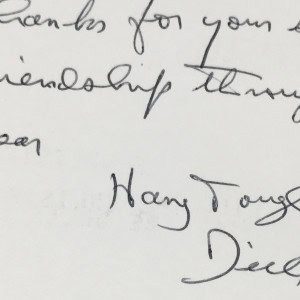 hanks for your
riendship throug
ear
Hang Tough
Dick